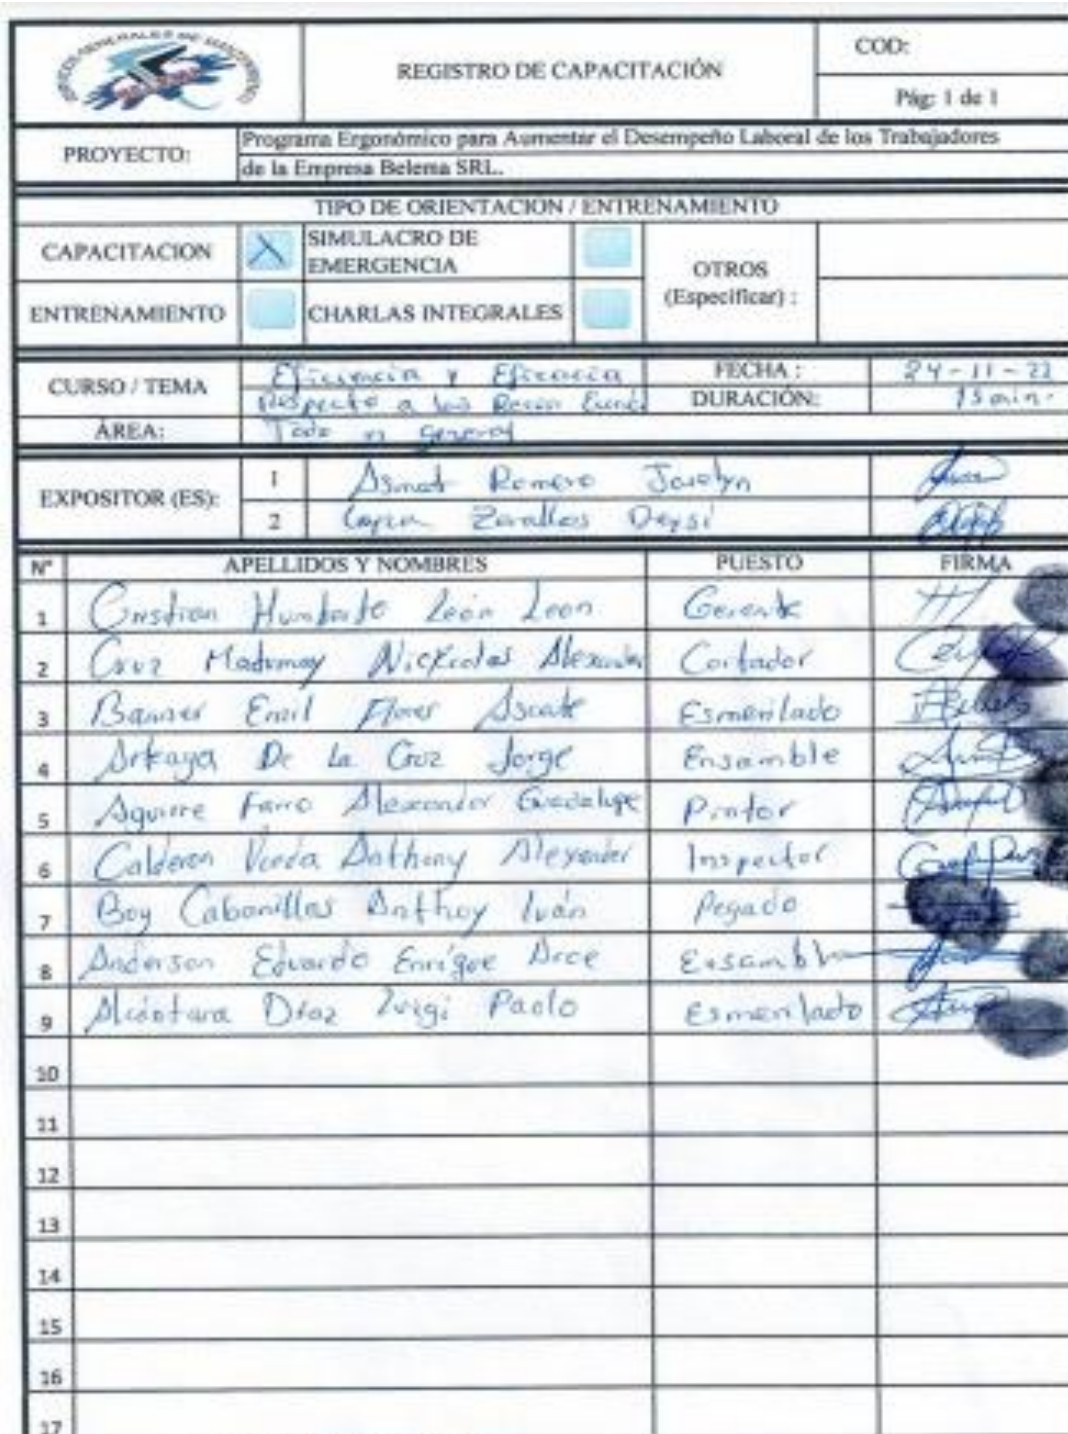 SERVICIOS GENERALES DE
REGISTRO DE CAPACITACIÓN
COD:
Pág: 1 de 1
PROYECTO:
Programa Ergonómico para Aumentar el Desempeño Laboral de los Trabajadores
de la Empresa Belema SRL.
TIPO DE ORIENTACION / ENTRENAMIENTO
CAPACITACION X SIMULACRO DE EMERGENCIA
OTROS (Especificar) :
ENTRENAMIENTO CHARLAS INTEGRALES
CURSO / TEMA Eficiencia y Eficacia FECHA : 24-11-22
Respecto a los DURACIÓN: 15 min.
ÁREA: Todo en general
EXPOSITOR (ES): 1 Asmat Romero Joselyn
2 Zevallos Deysi
N° APELLIDOS Y NOMBRES PUESTO FIRMA
1 Cristian Humberto León León Gerente
2 Cruz Alexander Cortador
3 Banner Emil Ascate Esmerilado
4 Arteaga De La Cruz Jorge Ensamble
5 Aguirre Farro Alexander Guadalupe Pintor
6 Calderon Anthony Alexander Inspector
7 Boy Cabanillas Anthoy Iván Pegado
8 Anderson Eduardo Enríque Arce Ensambla
9 Alcántara Díaz Luigi Paolo Esmerilado
10
11
12
13
14
15
16
17